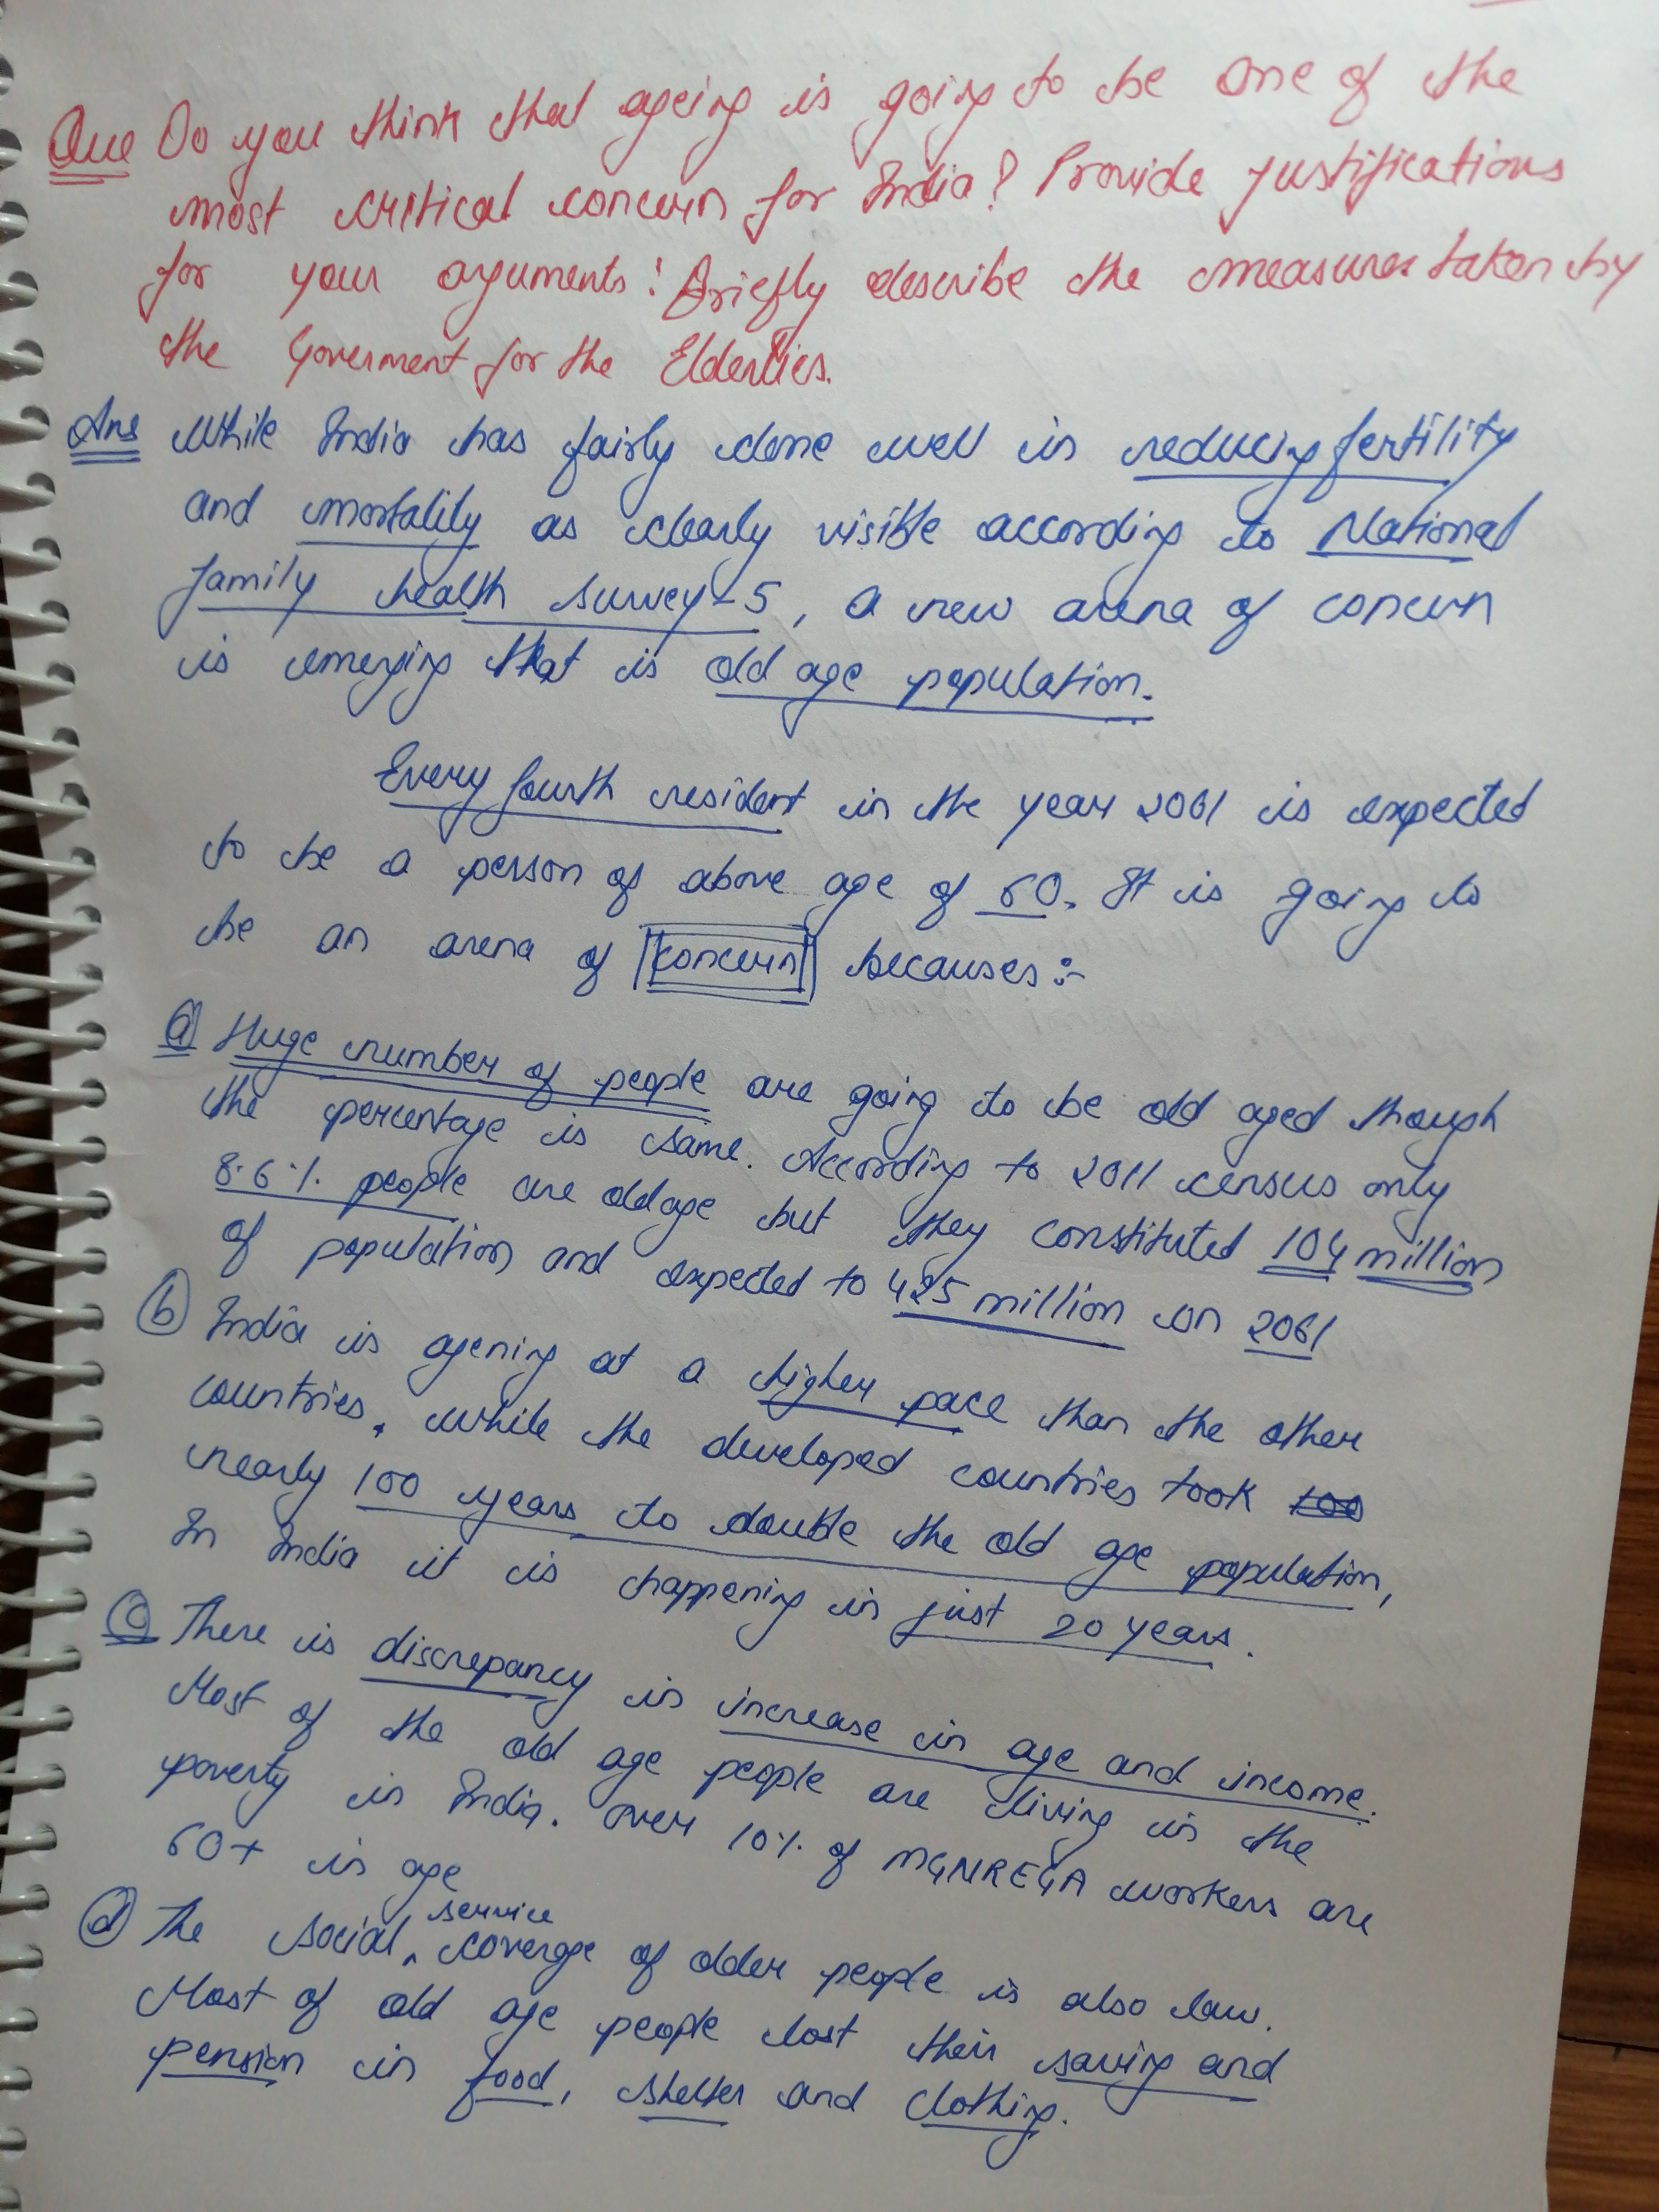 Que Do you think that ageing is going to be one of the
most critical concern for India? Provide justifications
for your arguments! Briefly describe the measures taken by
the Goverment for the Elderlies.
Ans While India has fairly done well in reducing fertility
and mortality as clearly visible according to National
family health survey-5, a new arena of concern
is emerging that is old age population.
Every fourth resident in the year 2061 is expected
to be a person of above age of 60. It is going to
be an arena of concern becauses:-
(a) Huge number of people are going to be old aged though
the percentage is same. According to 2011 census only
8.6% people are old age but they constituted 104 million
of population and expected to 425 million in 2061
(b) India is agening at a higher pace than the other
countries. While the developed countries took 100
nearly 100 years to double the old age population,
In India it is happening in just 20 years.
(c) There is discrepancy in increase in age and income.
Most of the old age people are living in the
poverty in India. Over 10% of MGNREGA workers are
60+ in age
(d) The social service coverge of older people is also law.
Most of old age people lost their saving and
pension in food, shelter and clothing.